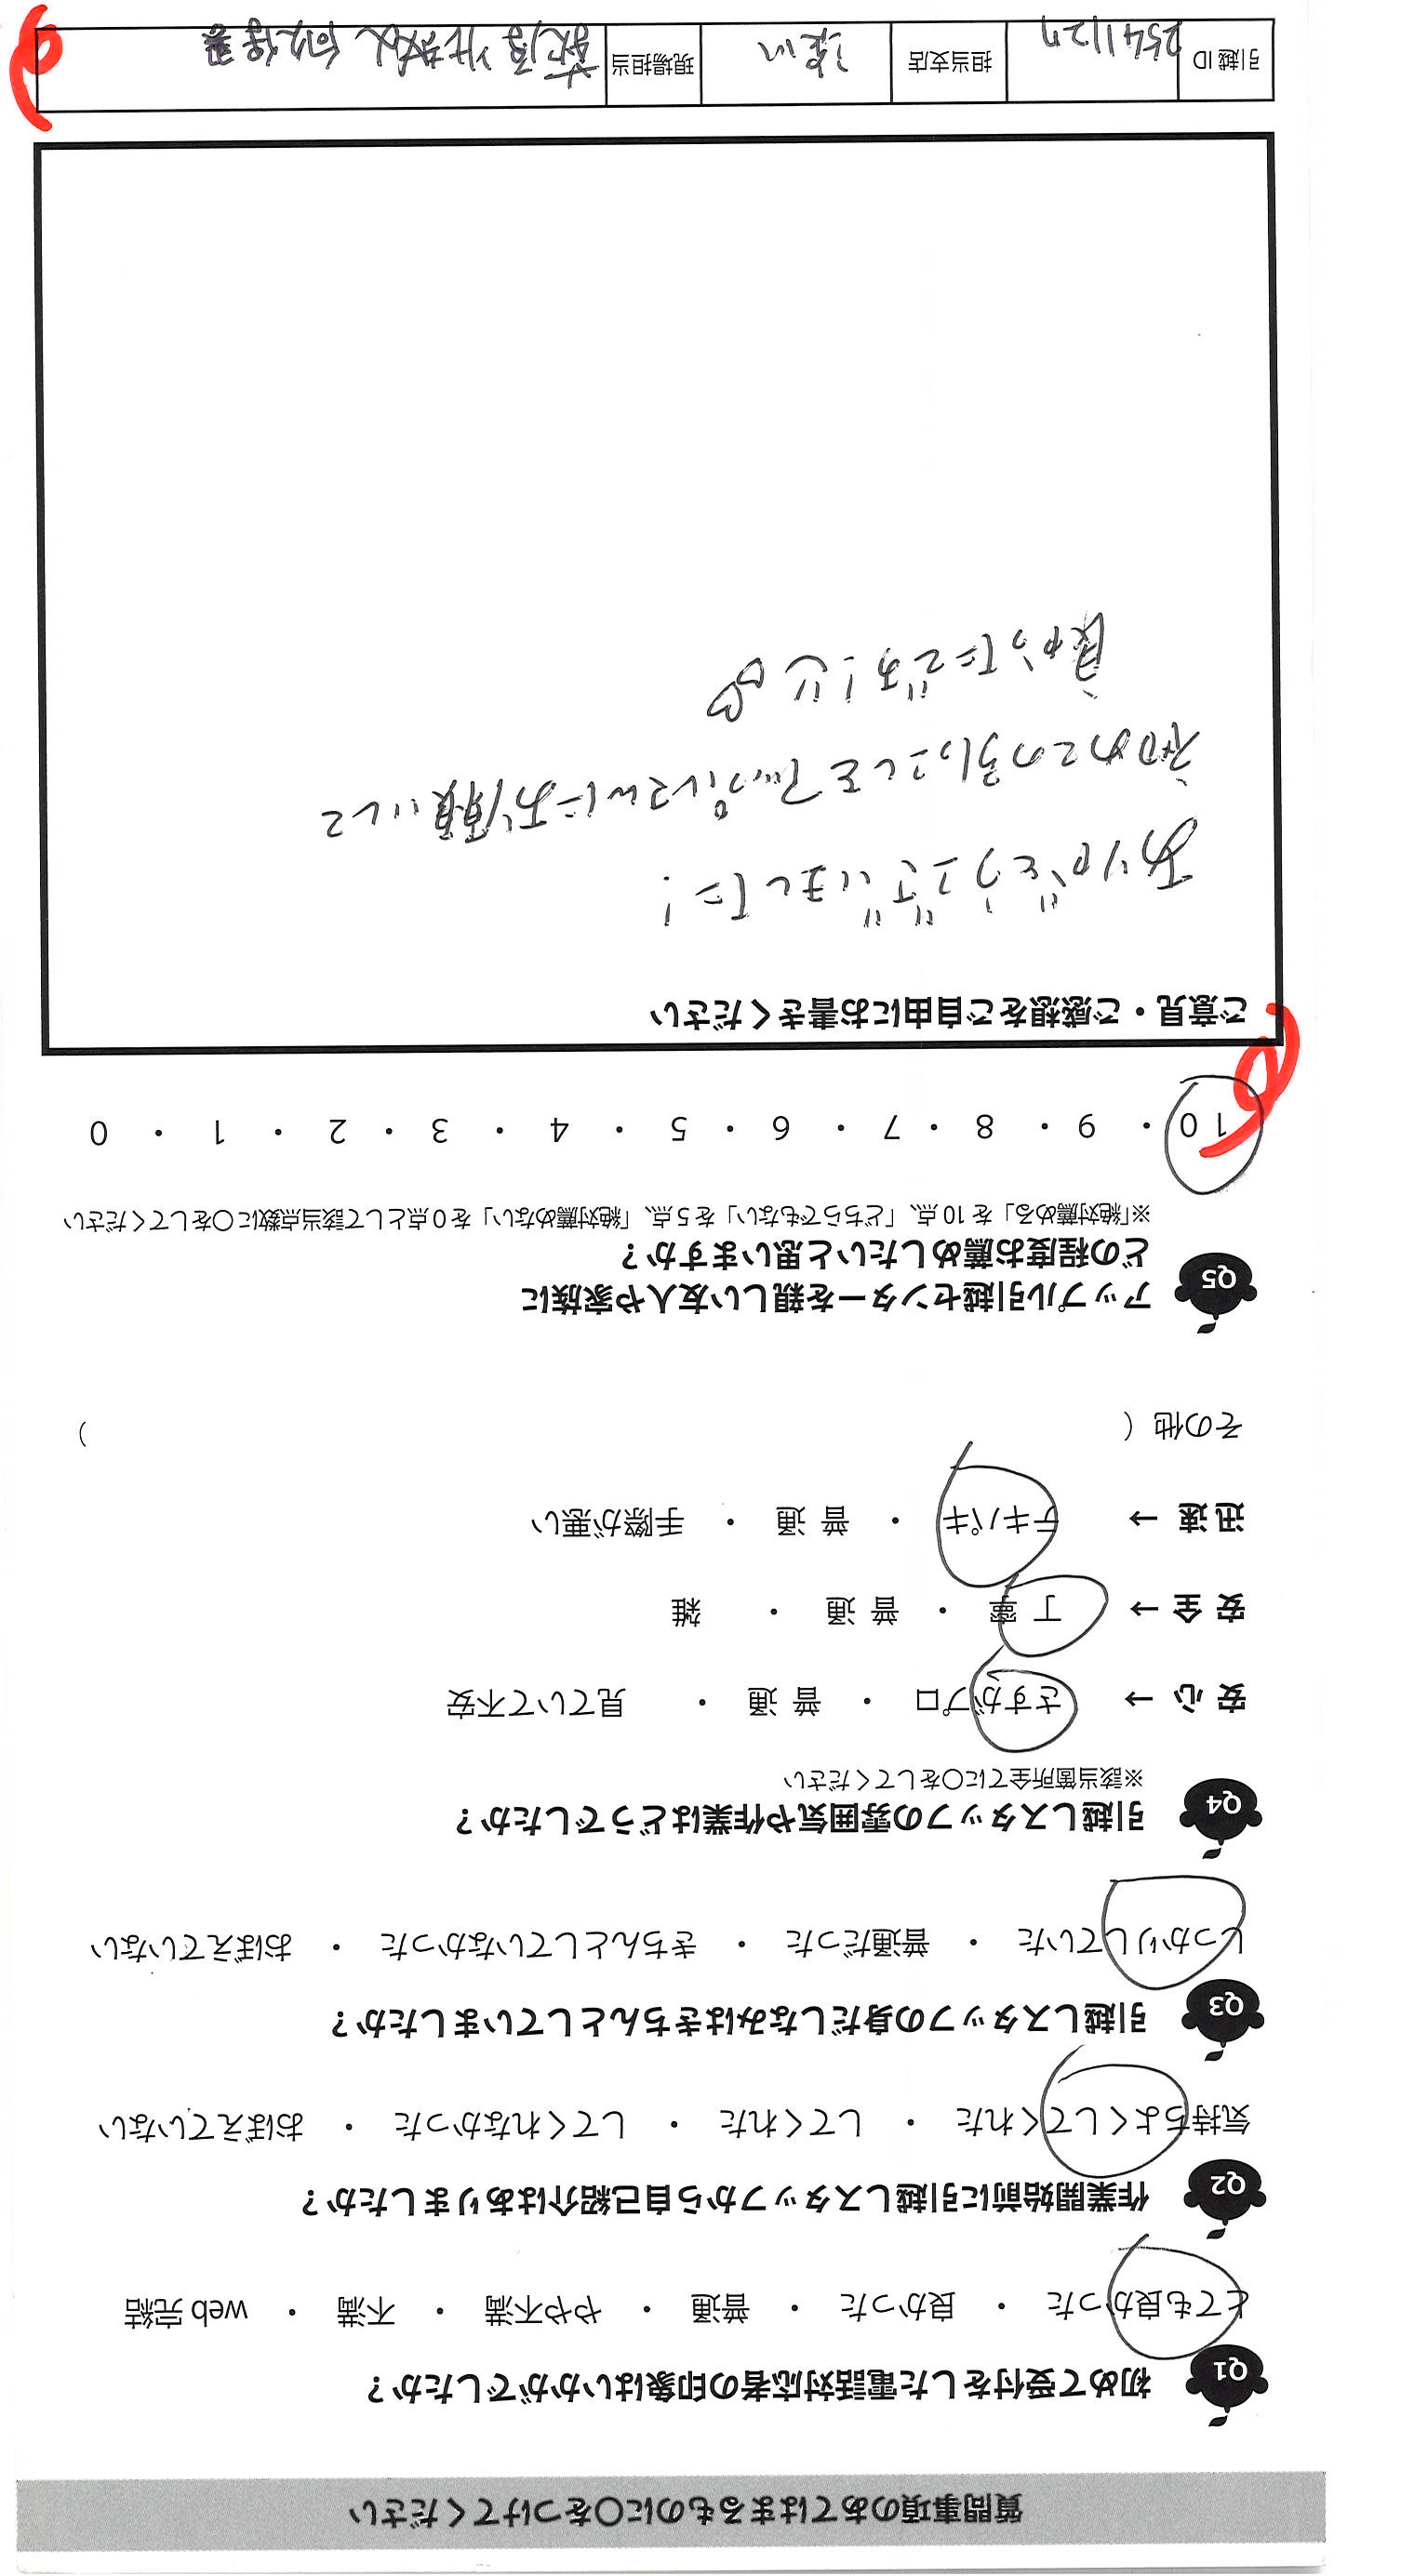 質問事項のあてはまるものに〇をつけてください
Q1 初めて受付をした電話対応者の印象はいかがでしたか？
とても良かった ・ 良かった ・ 普通 ・ やや不満 ・ 不満 ・ web 完結
Q2 作業開始前に引越しスタッフから自己紹介はありましたか？
気持ちよくしてくれた ・ してくれた ・ してくれなかった ・ おぼえていない
Q3 引越しスタッフの身だしなみはきちんとしていましたか？
しっかりしていた ・ 普通だった ・ きちんとしていなかった ・ おぼえていない
Q4 引越しスタッフの雰囲気や作業はどうでしたか？
※該当箇所全てに〇をしてください
安 心 → さすがプロ ・ 普 通 ・ 見ていて不安
安 全 → 丁 寧 ・ 普 通 ・ 雑
迅 速 → テキパキ ・ 普 通 ・ 手際が悪い
その他（ ）
Q5 アップル引越センターを親しい友人や家族に
どの程度お薦めしたいと思いますか？
※「絶対薦める」を 10 点、「どちらでもない」を 5 点、「絶対薦めない」を 0 点として該当点数に〇をしてください
10 ・ 9 ・ 8 ・ 7 ・ 6 ・ 5 ・ 4 ・ 3 ・ 2 ・ 1 ・ 0
ご意見・ご感想をご自由にお書きください
ありがとうございました！
初めての引っこしをアップルさんにお願いして
良かったです！
引越 ID 2541127 担当支店 現場担当